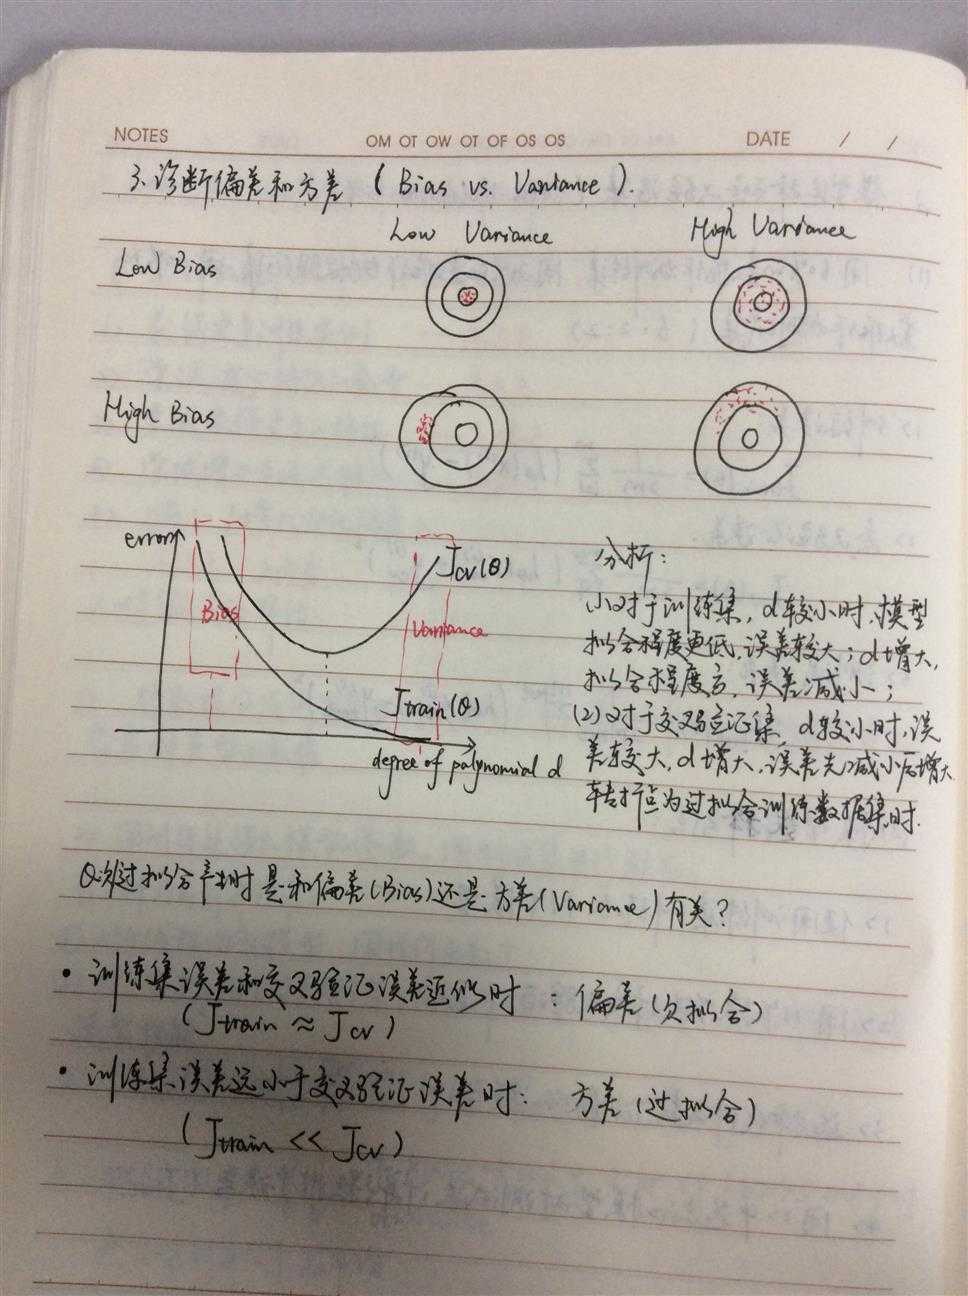 NOTES OM OT OW OT OF OS OS DATE / /
3、诊断偏差和方差 ( Bias vs. Variance ).
Low Variance High Variance
Low Bias
High Bias
error
Jcv(θ)
Bias
Variance
Jtrain(θ)
degree of polynomial d
分析:
(1)对于训练集, d较小时,模型
拟合程度更低,误差较大;d增大,
拟合程度高,误差减小;
(2)对于交叉验证集, d较小时,误
差较大,d增大,误差先减小后增大
转折点为过拟合训练数据集时.
过拟合产生时是和偏差(Bias)还是方差(Variance)有关?
• 训练集误差和交叉验证误差近似时 : 偏差(欠拟合)
(Jtrain ≈ Jcv)
• 训练集误差远小于交叉验证误差时: 方差(过拟合)
(Jtrain << Jcv)